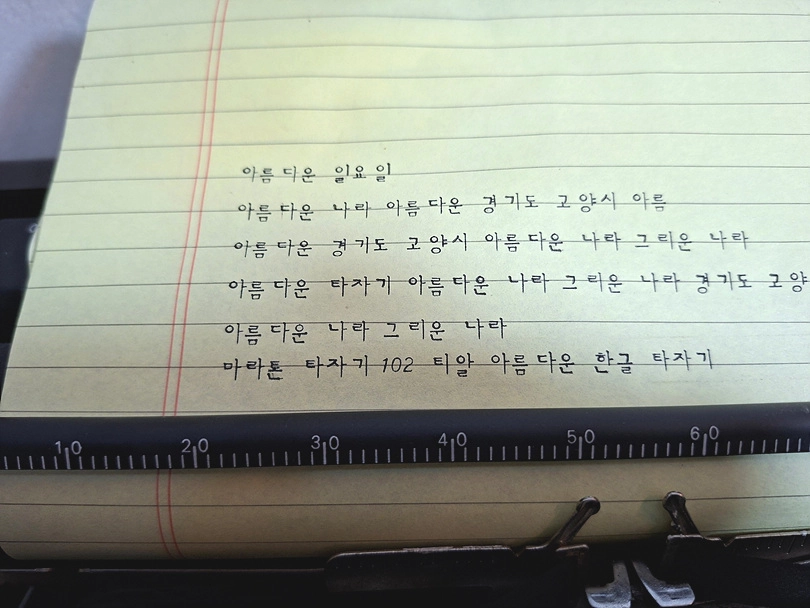 아름다운 일요일
아름다운 나라 아름다운 경기도 고양시 아름
아름다운 경기도 고양시 아름다운 나라 그리운 나라
아름다운 타자기 아름다운 나라 그리운 나라 경기도 고양
아름다운 나라 그리운 나라
마라톤 타자기 102 티알 아름다운 한글 타자기
10 20 30 40 50 60